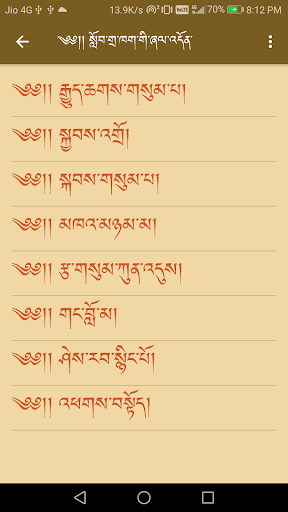 Jio 4G 13.9K/s 4G 70% 8:12 PM
༄༅།། སློབ་གྲྭ་ཁག་གི་ཞལ་འདོན་
༄༅།། རྒྱུད་ཆགས་གསུམ་པ།
༄༅།། སྐྱབས་འགྲོ།
༄༅།། སྐབས་གསུམ་པ།
༄༅།། མཁའ་མཉམ་མ།
༄༅།། རྩ་གསུམ་ཀུན་འདུས།
༄༅།། གང་བློ་མ།
༄༅།། ཤེས་རབ་སྙིང་པོ།
༄༅།། འཕགས་བསྟོད།